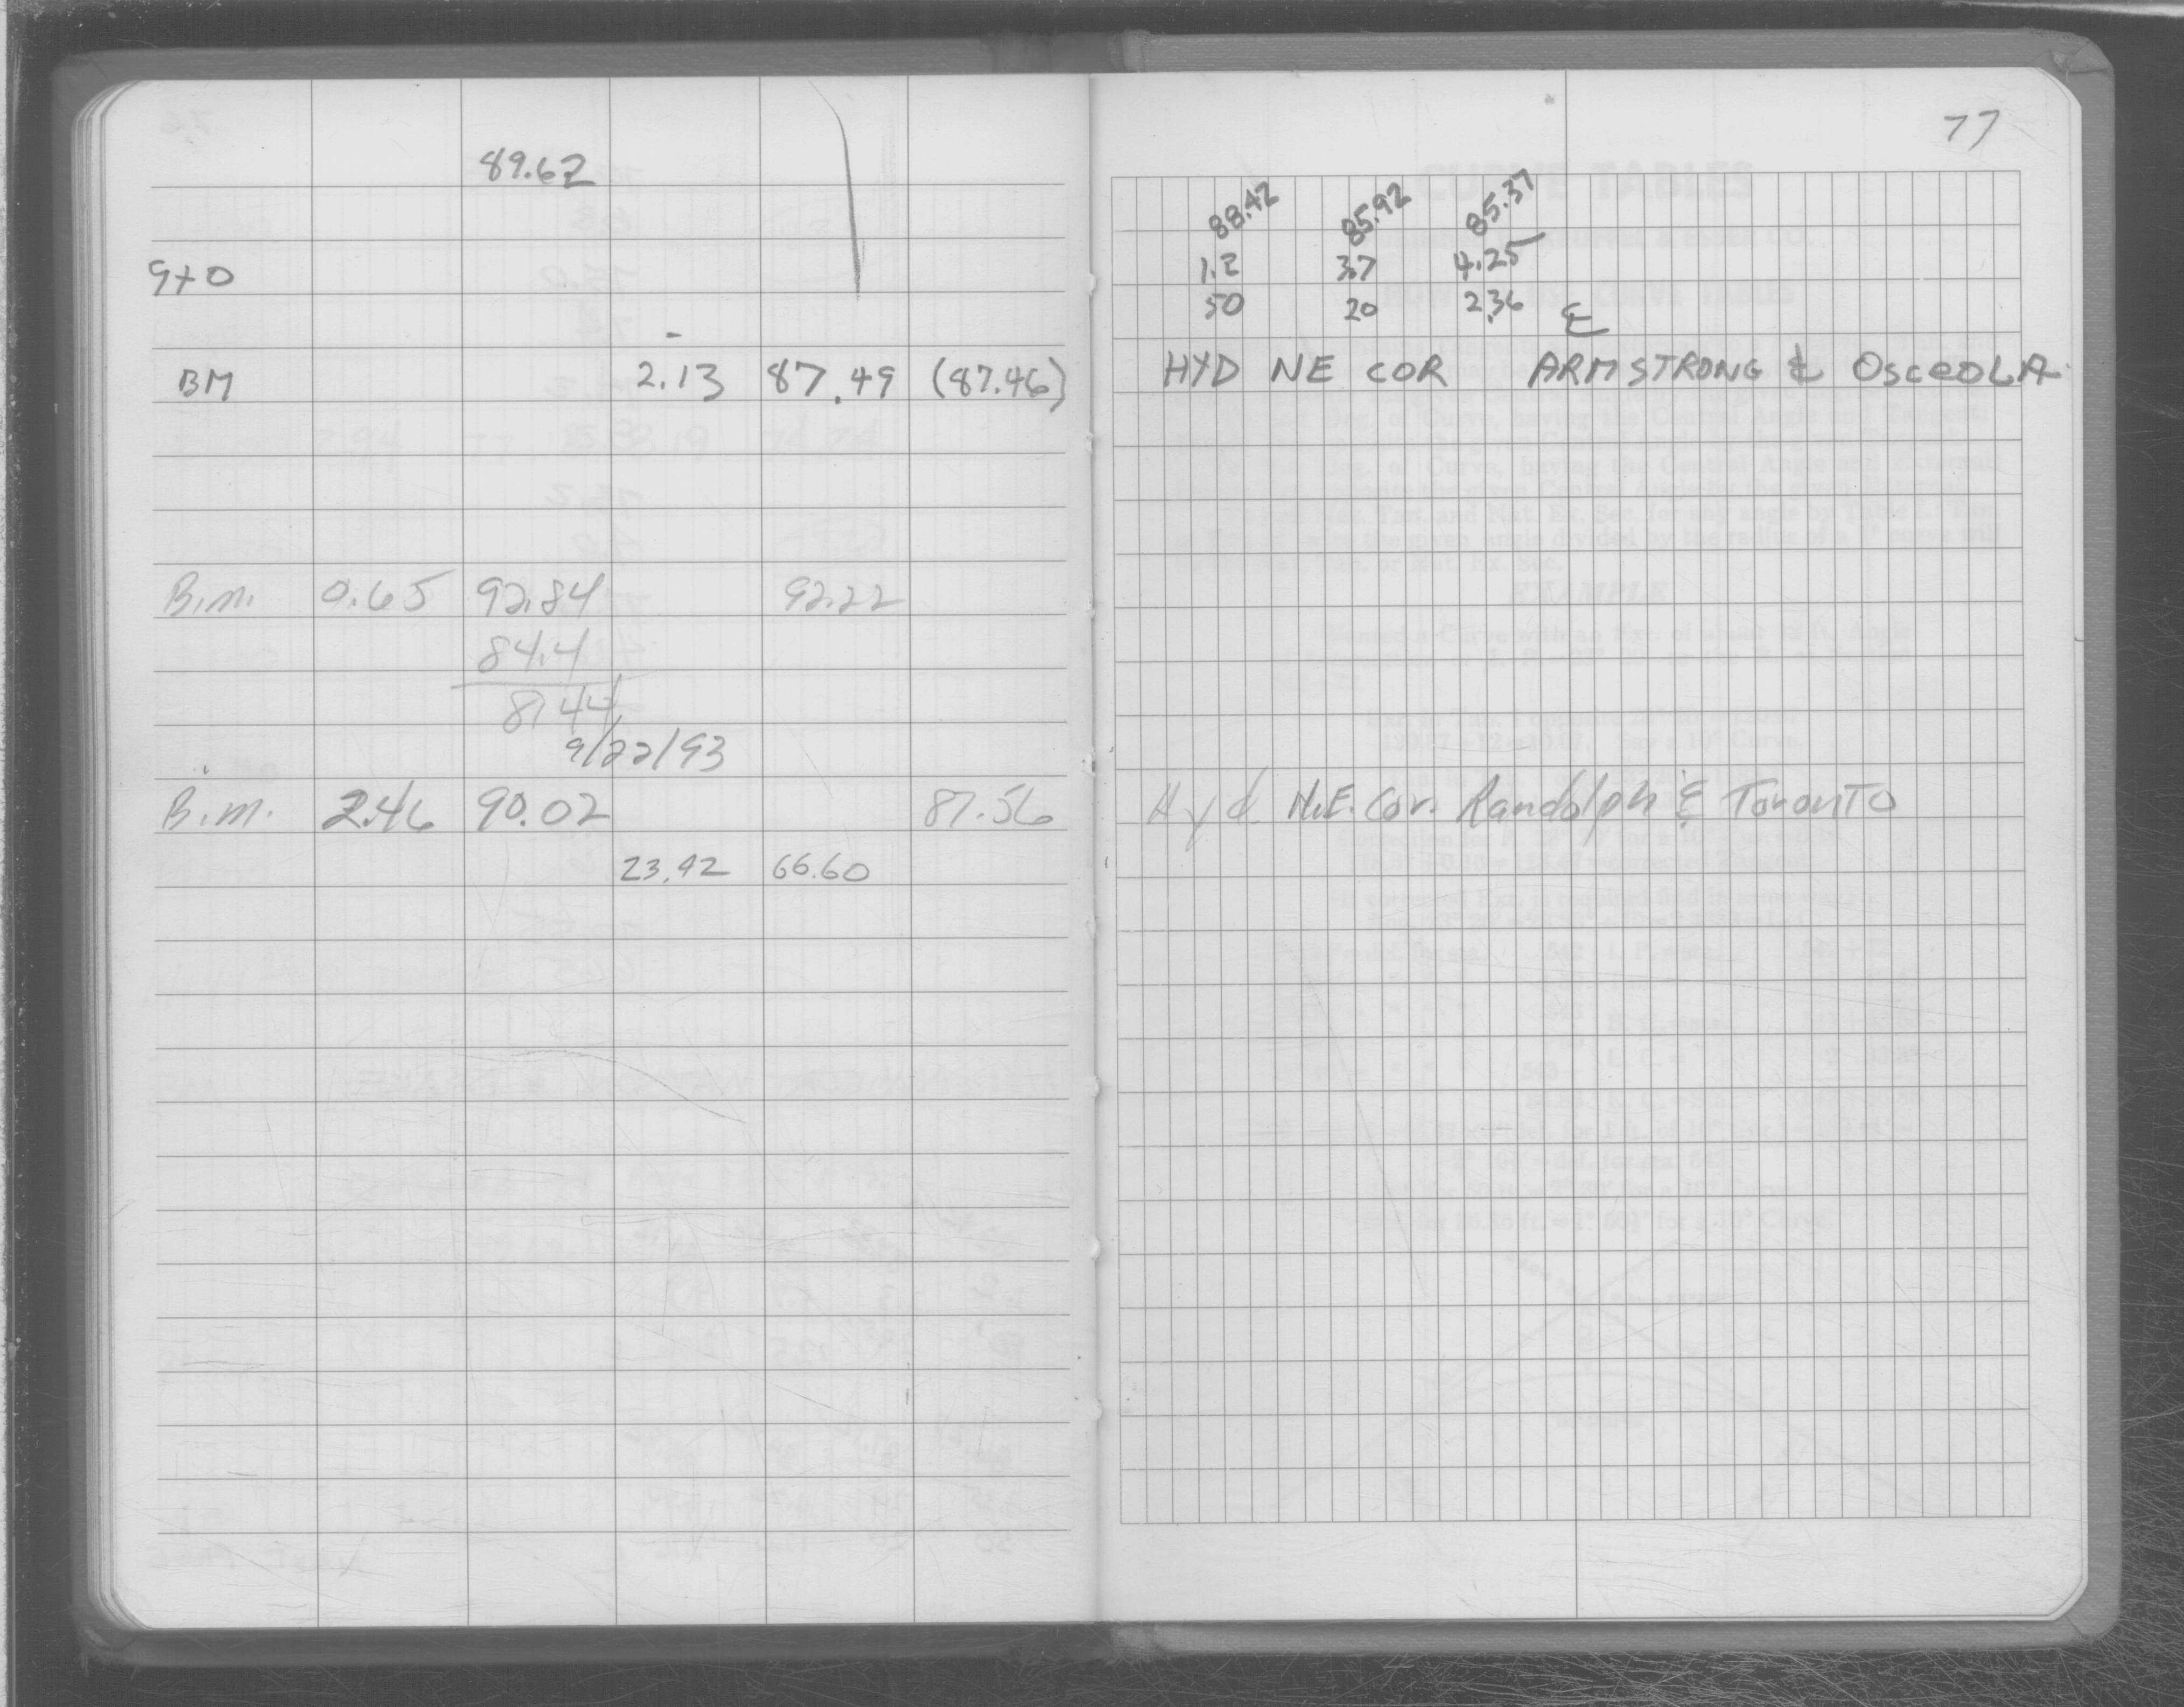 77
89.62
88.42 85.92 85.37
9+0 1.2 3.7 4.25
50 20 2.36 ℄
BM 2.13 87.49 (87.46) HYD NE COR ARMSTRONG & OSCEOLA
B.M. 0.65 92.84 92.22
84.4
8.44
9/22/93
B.M. 2.46 90.02 87.56 Hyd. N.E. Cor. Randolph & Toronto
23.42 66.60